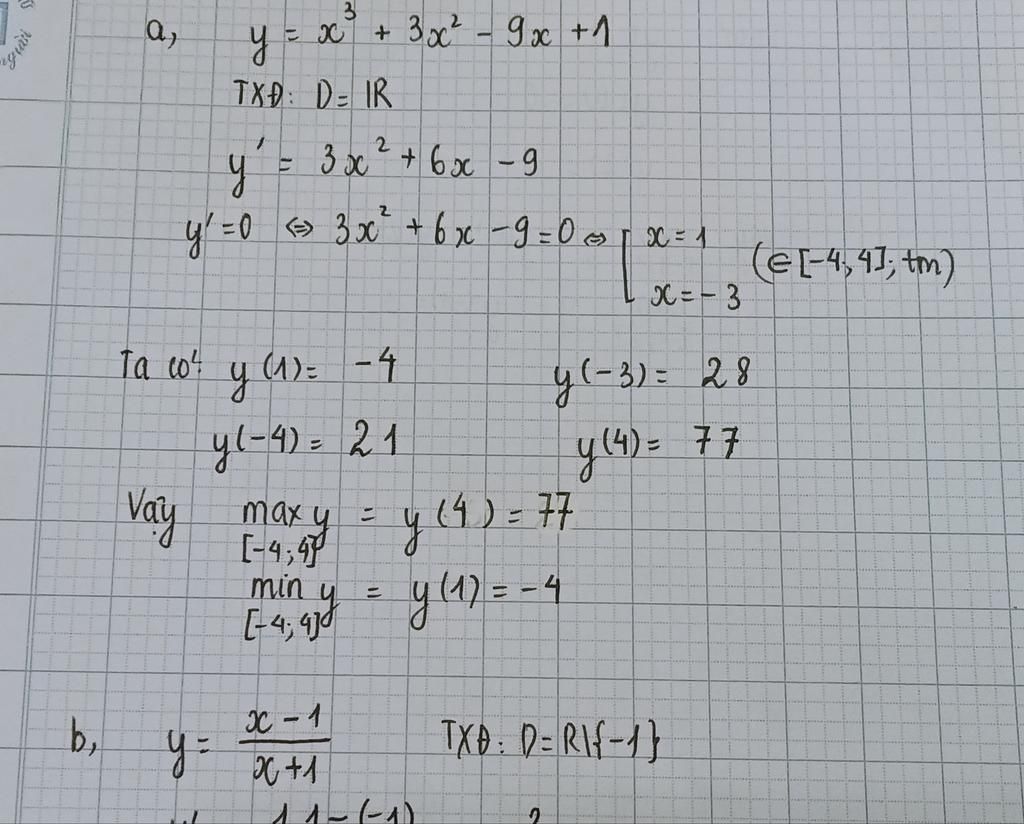 người
a, y = x³ + 3x² - 9x + 1
TXĐ: D = ℝ
y' = 3x² + 6x - 9
y' = 0 ⇔ 3x² + 6x - 9 = 0 ⇔ [ x = 1
x = -3 (∈ [-4; 4]; tm)
Ta có: y(1) = -4 y(-3) = 28
y(-4) = 21 y(4) = 77
Vậy max y = y(4) = 77
[-4; 4]
min y = y(1) = -4
[-4; 4]
b, y = (x - 1)/(x + 1) TXĐ: D = R\{-1}
1.1 - (-1) 2